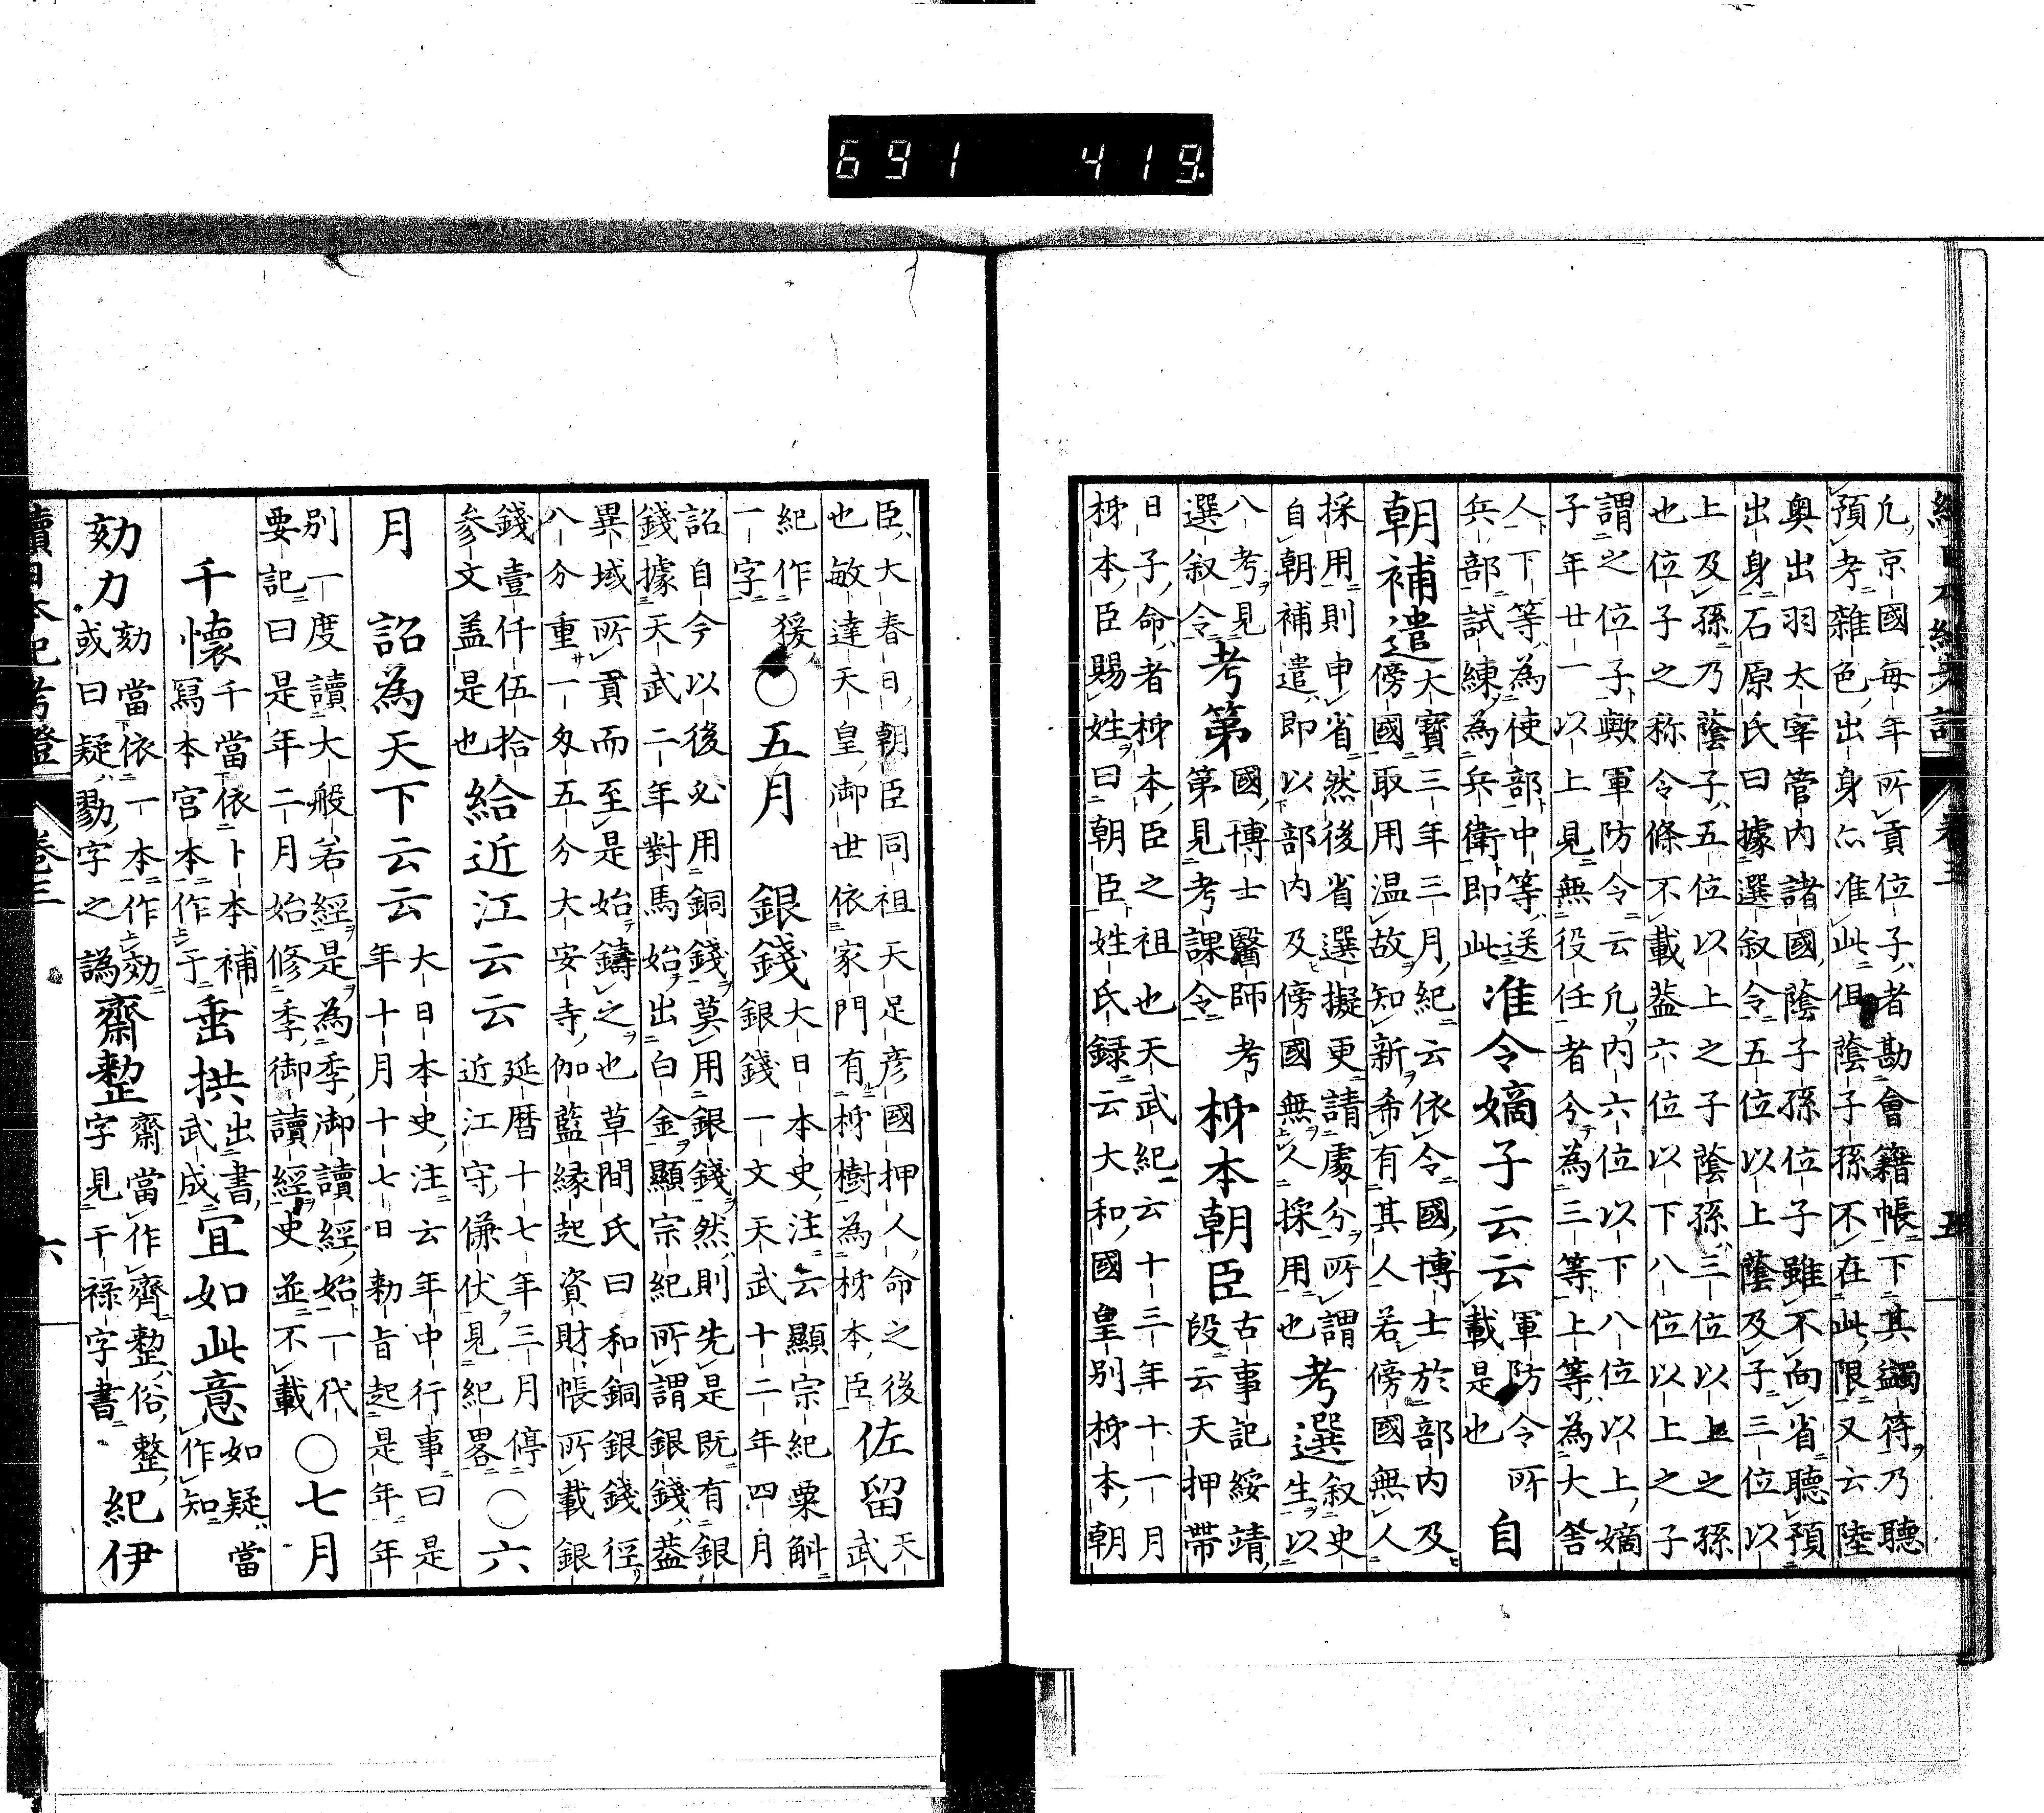 691 419
続日本紀考証 卷三 五
凡京國每年所貢位子者勘會籍帳下其蠲符乃聽
預考雜色出身亦准此但蔭子孫不在此限又云陸
奥出羽太宰管內諸國蔭子孫位子雖不向省聽預
出身石原氏曰據選叙令五位以上蔭及子三位以
上及孫乃蔭子五位以上之子蔭孫三位以上之孫
也位子之称令條不載葢六位以下八位以上之子
謂之位子歟軍防令云凡內六位以下八位以上嫡
子年廿一以上見無役任者今為三等上等為大舍
人下等為使部中等送
兵部試練為兵衛即此
准令嫡子云云
軍防令所
載是也
自
朝補遣
大寶三年三月紀云依令國博士於部內及
傍國取用温故知新希有其人若傍國無人
採用則申省然後省選擬更請處分所謂
自朝補遣即以部內及傍國無人採用也
考選
叙史
生以
八考見
選叙令
考第
國博士醫師考
第見考課令
柹本朝臣
古事記綏靖
段云天押帶
日子命者柹本臣之祖也天武紀云十三年十一月
柹本臣賜姓曰朝臣姓氏録云大和國皇別柹本朝
臣大春日朝臣同祖天足彦國押人命之後
也敏達天皇御世依家門有柹樹為柹本臣
佐留
天
武
紀作猨
一字
○五月
銀錢
大日本史注云顯宗紀粟斛
銀錢一文天武十二年四月
詔自今以後必用銅錢莫用銀錢然則先是既有銀
錢據天武二年對馬始出白金顯宗紀所謂銀錢葢
異域所貢而至是始鑄之也草間氏曰和銅銀錢徑
八分重一匁五分大安寺伽藍縁起資財帳所載銀
錢壹仟伍拾
参文盖是也
給近江云云
延暦十七年三月停
近江守傔伏見紀畧
○六
月
詔為天下云云
大日本史注云年中行事曰是
年十月十七日勅旨起是年年
別一度讀大般若經是為季御讀經始一代
要記曰是年二月始修季御讀經史並不載
○七月
千懷
千當依卜本補
寫本宮本作于
垂拱
出書
武成
宜如此意
如疑當
作知
劾力
劾當依一本作効
或曰疑勠字之譌
齋整
齋當作齊整俗整
字見干禄字書
紀伊
續日本紀考證 卷三 六